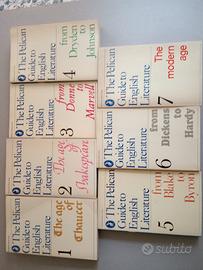 The Pelican
Guide to
English
Literature
4
from
Dryden
to
Johnson
The Pelican
Guide to
English
Literature
3
from
Donne
to
Marvell
The Pelican
Guide to
English
Literature
2
The age
of
Shakespeare
The Pelican
Guide to
English
Literature
1
The age
of
Chaucer
The Pelican
Guide to
English
Literature
7
The
modern
age
The Pelican
Guide to
English
Literature
6
from
Dickens
to
Hardy
The Pelican
Guide to
English
Literature
5
from
Blake
to
Byron
subito